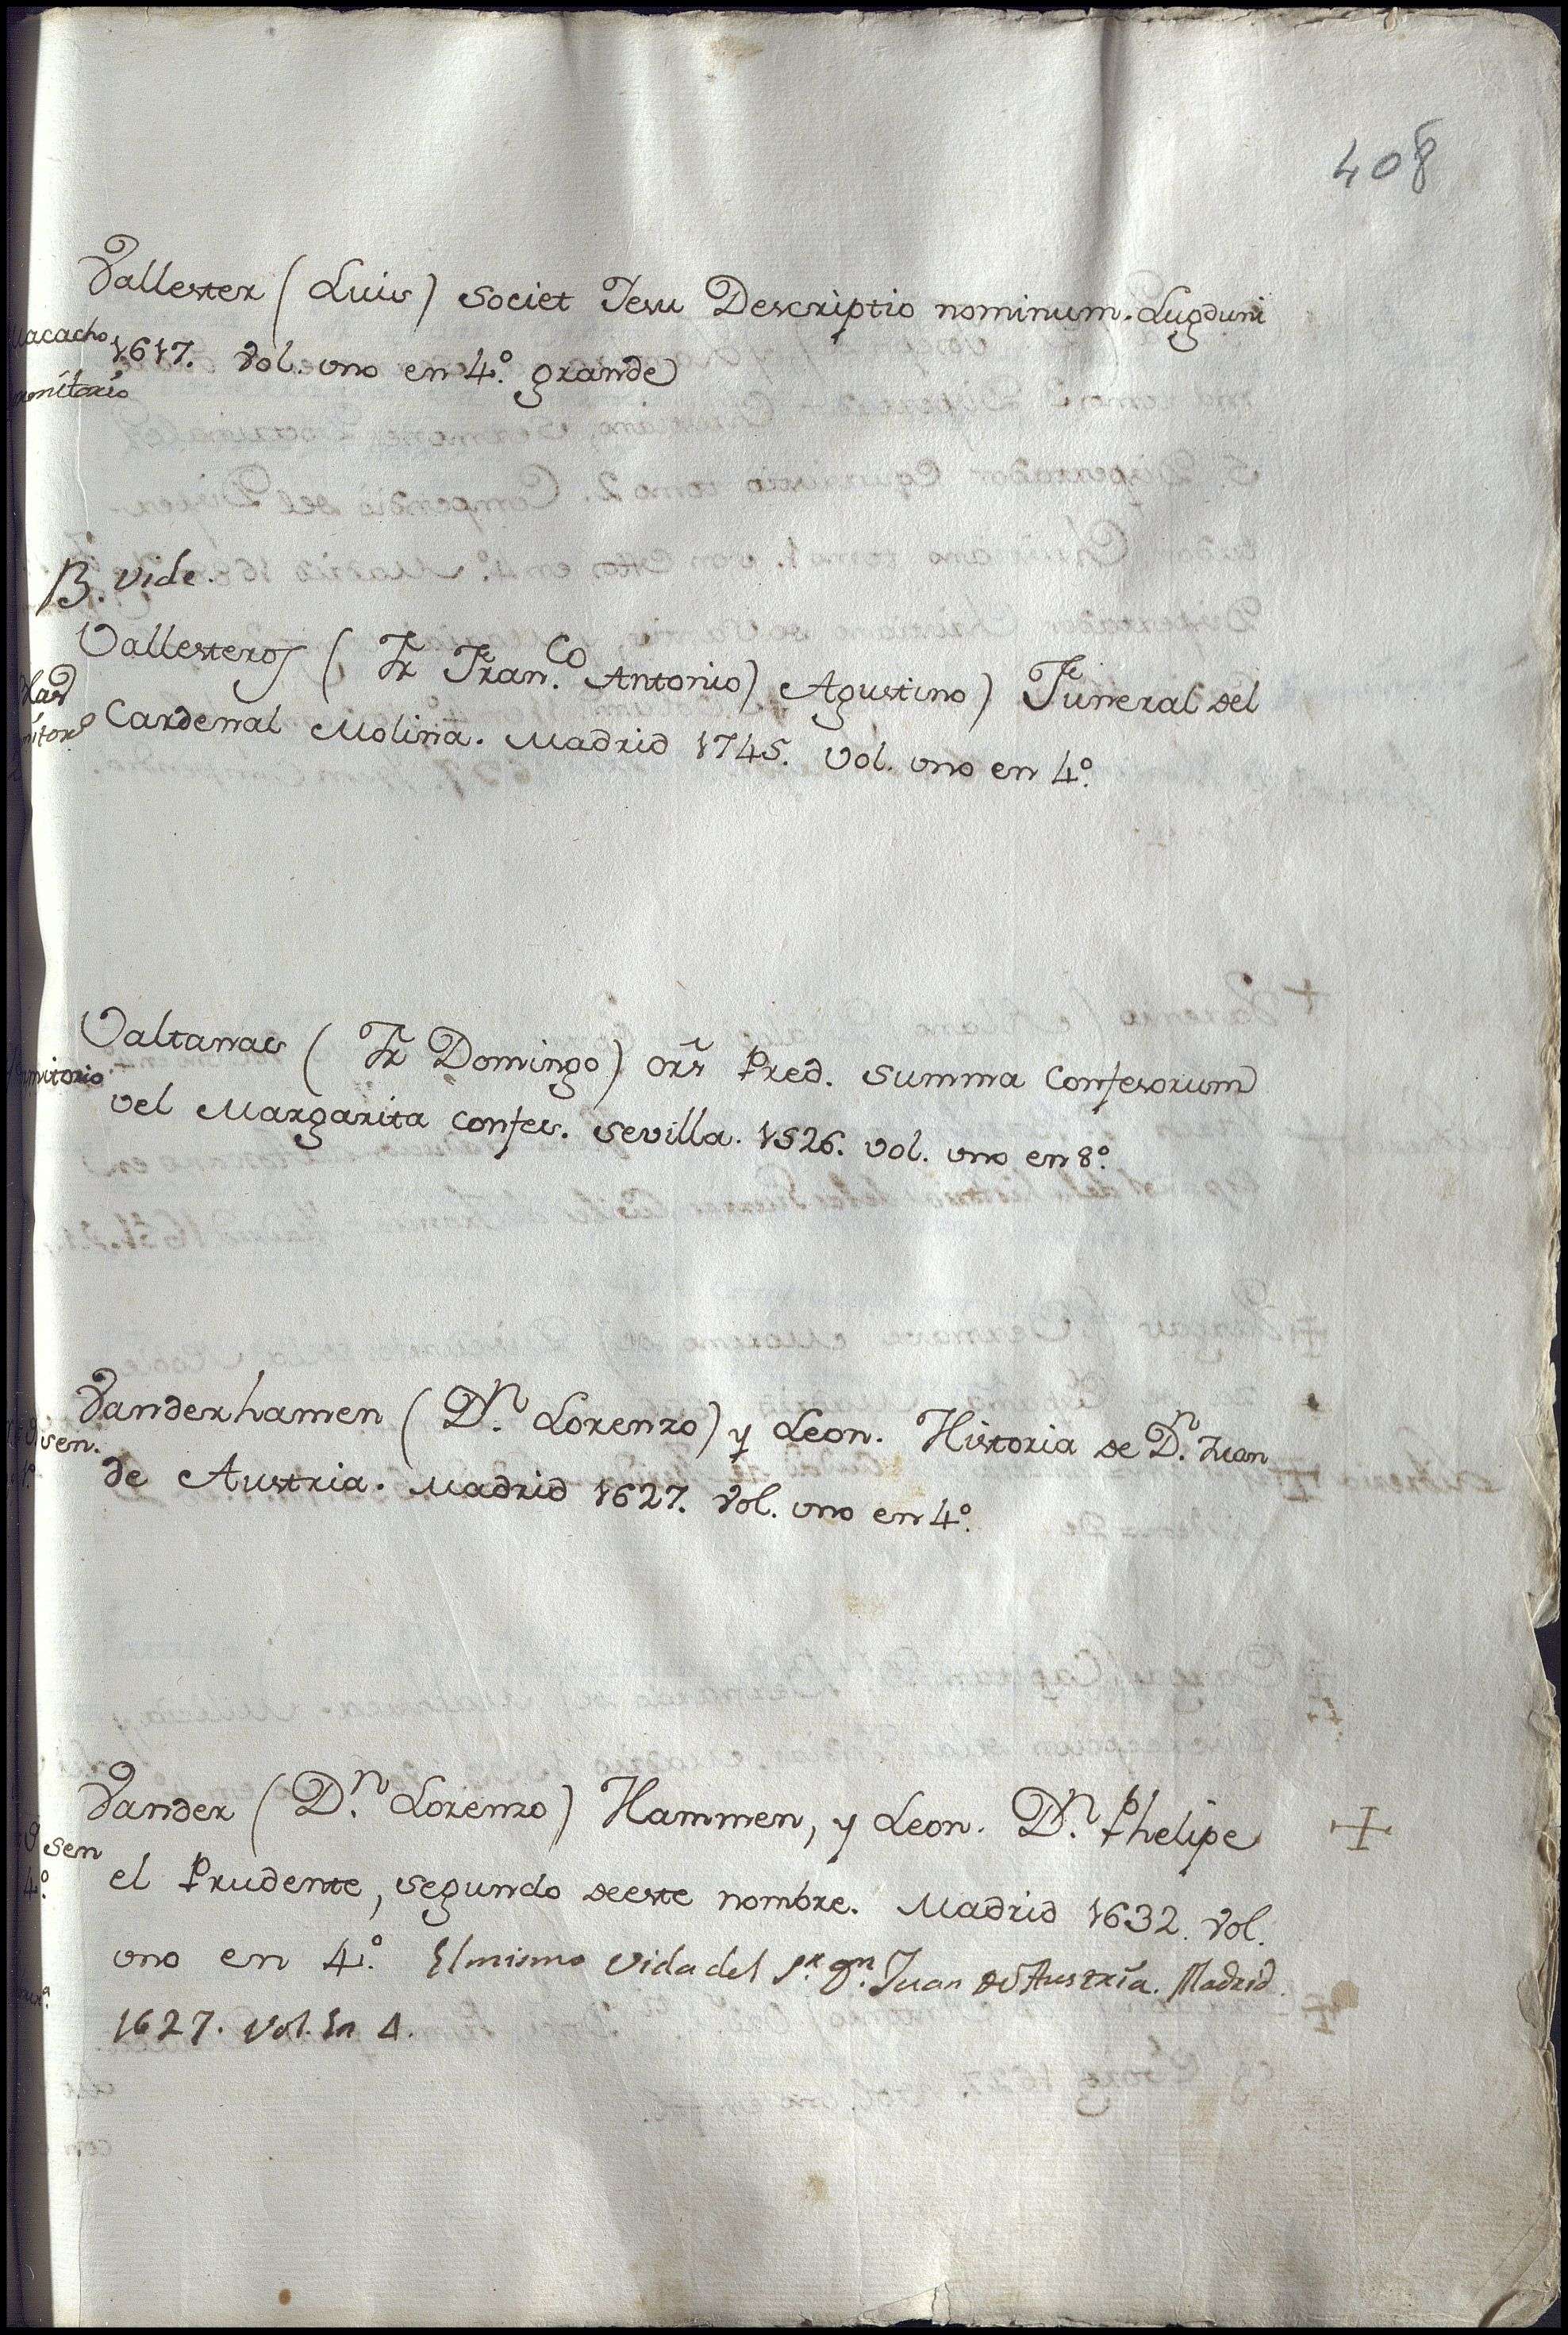 408
Vallester (Luis) Societ Jesu Descriptio nominum. Lugduni
1617. Vol. uno en 4º. grande
B. vide.
Vallesteros (Fr Fran.co Antonio) Agustino) Funeral del
Cardenal Molina. Madrid 1745. Vol. uno en 4º.
Valtanas (Fr Domingo) Ors Pred. Summa Confesorum
vel Margarita confes. Sevilla. 1526. vol. uno en 8º.
Vanderhamen (D.n Lorenzo) y Leon. Historia de D.n Juan
de Austria. Madrid 1627. Vol. uno en 4º.
Vander (D.n Lorenzo) Hammen, y Leon. D.n Phelipe
el Prudente, segundo deeste nombre. Madrid 1632. Vol.
uno en 4º. El mismo Vida del Sr. Dn. Juan de Austria. Madrid.
1627. Vol. En 4.